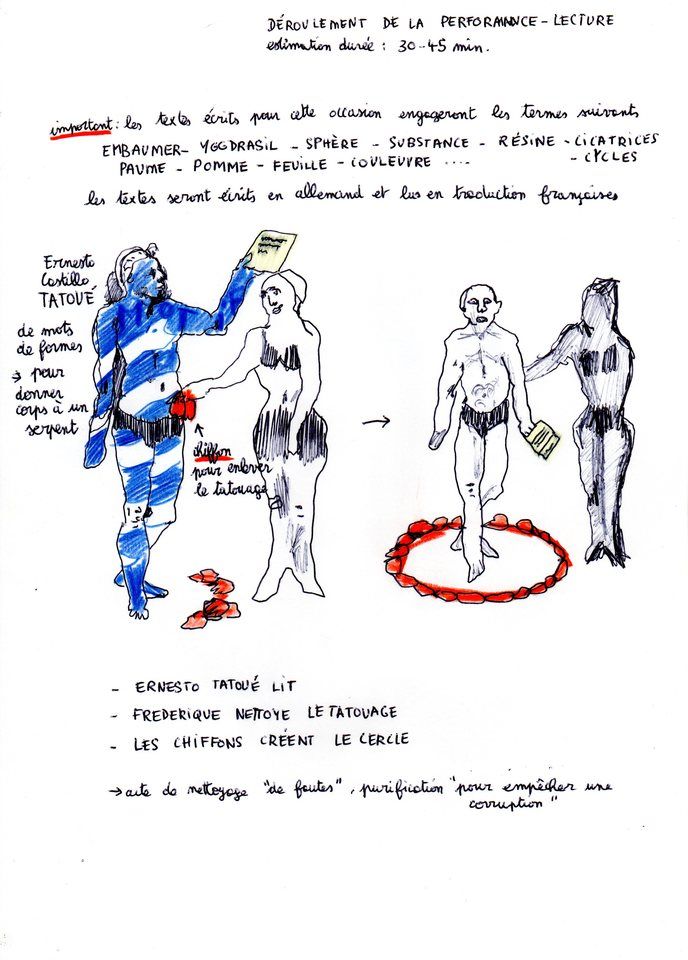 DÉROULEMENT DE LA PERFORMANCE-LECTURE
estimation durée : 30-45 min.
important : les textes écrits pour cette occasion engageront les termes suivants
EMBAUMER - YGGDRASIL - SPHÈRE - SUBSTANCE - RÉSINE - CICATRICES
PAUME - POMME - FEUILLE - COULEUVRE .... - CYCLES
les textes seront écrits en allemand et lus en traduction françaises
Ernesto
Castillo
TATOUÉ
de mots
de formes
→ pour
donner
corps à un
serpent
chiffon
pour enlever
le tatouage
→
- ERNESTO TATOUÉ LIT
- FREDERIQUE NETTOYE LE TATOUAGE
- LES CHIFFONS CRÉENT LE CERCLE
→ acte de nettoyage "de fautes", purification "pour empêcher une
corruption"